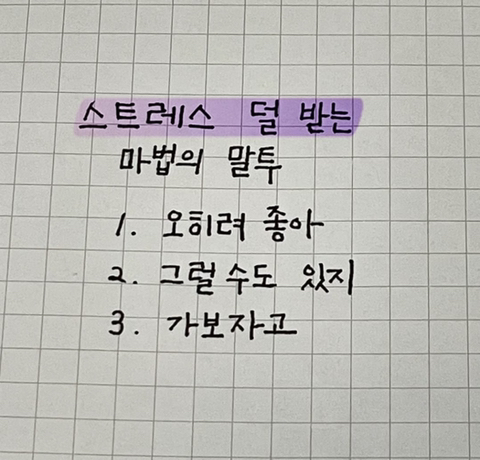 스트레스 덜 받는
마법의 말투
1. 오히려 좋아
2. 그럴 수도 있지
3. 가보자고